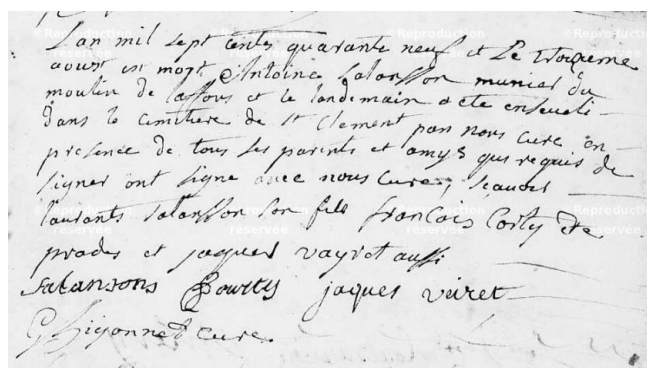 L'an mil sept cents quarante neuf et le
aoust est mort Antoine Salansson munier du
moulin de et le landemain a été enseveli
dans le cimitiere de st Clement par nous curé en
presence de tous ses parents et amys qui requis de
signer ont signe avec nous cure, scavoir
laurants Salansson son fils francois Corty de
prades et jaques vayret aussi
Salansons Courtis jaques viret
G higonnet cure.
© Reproduction réservée